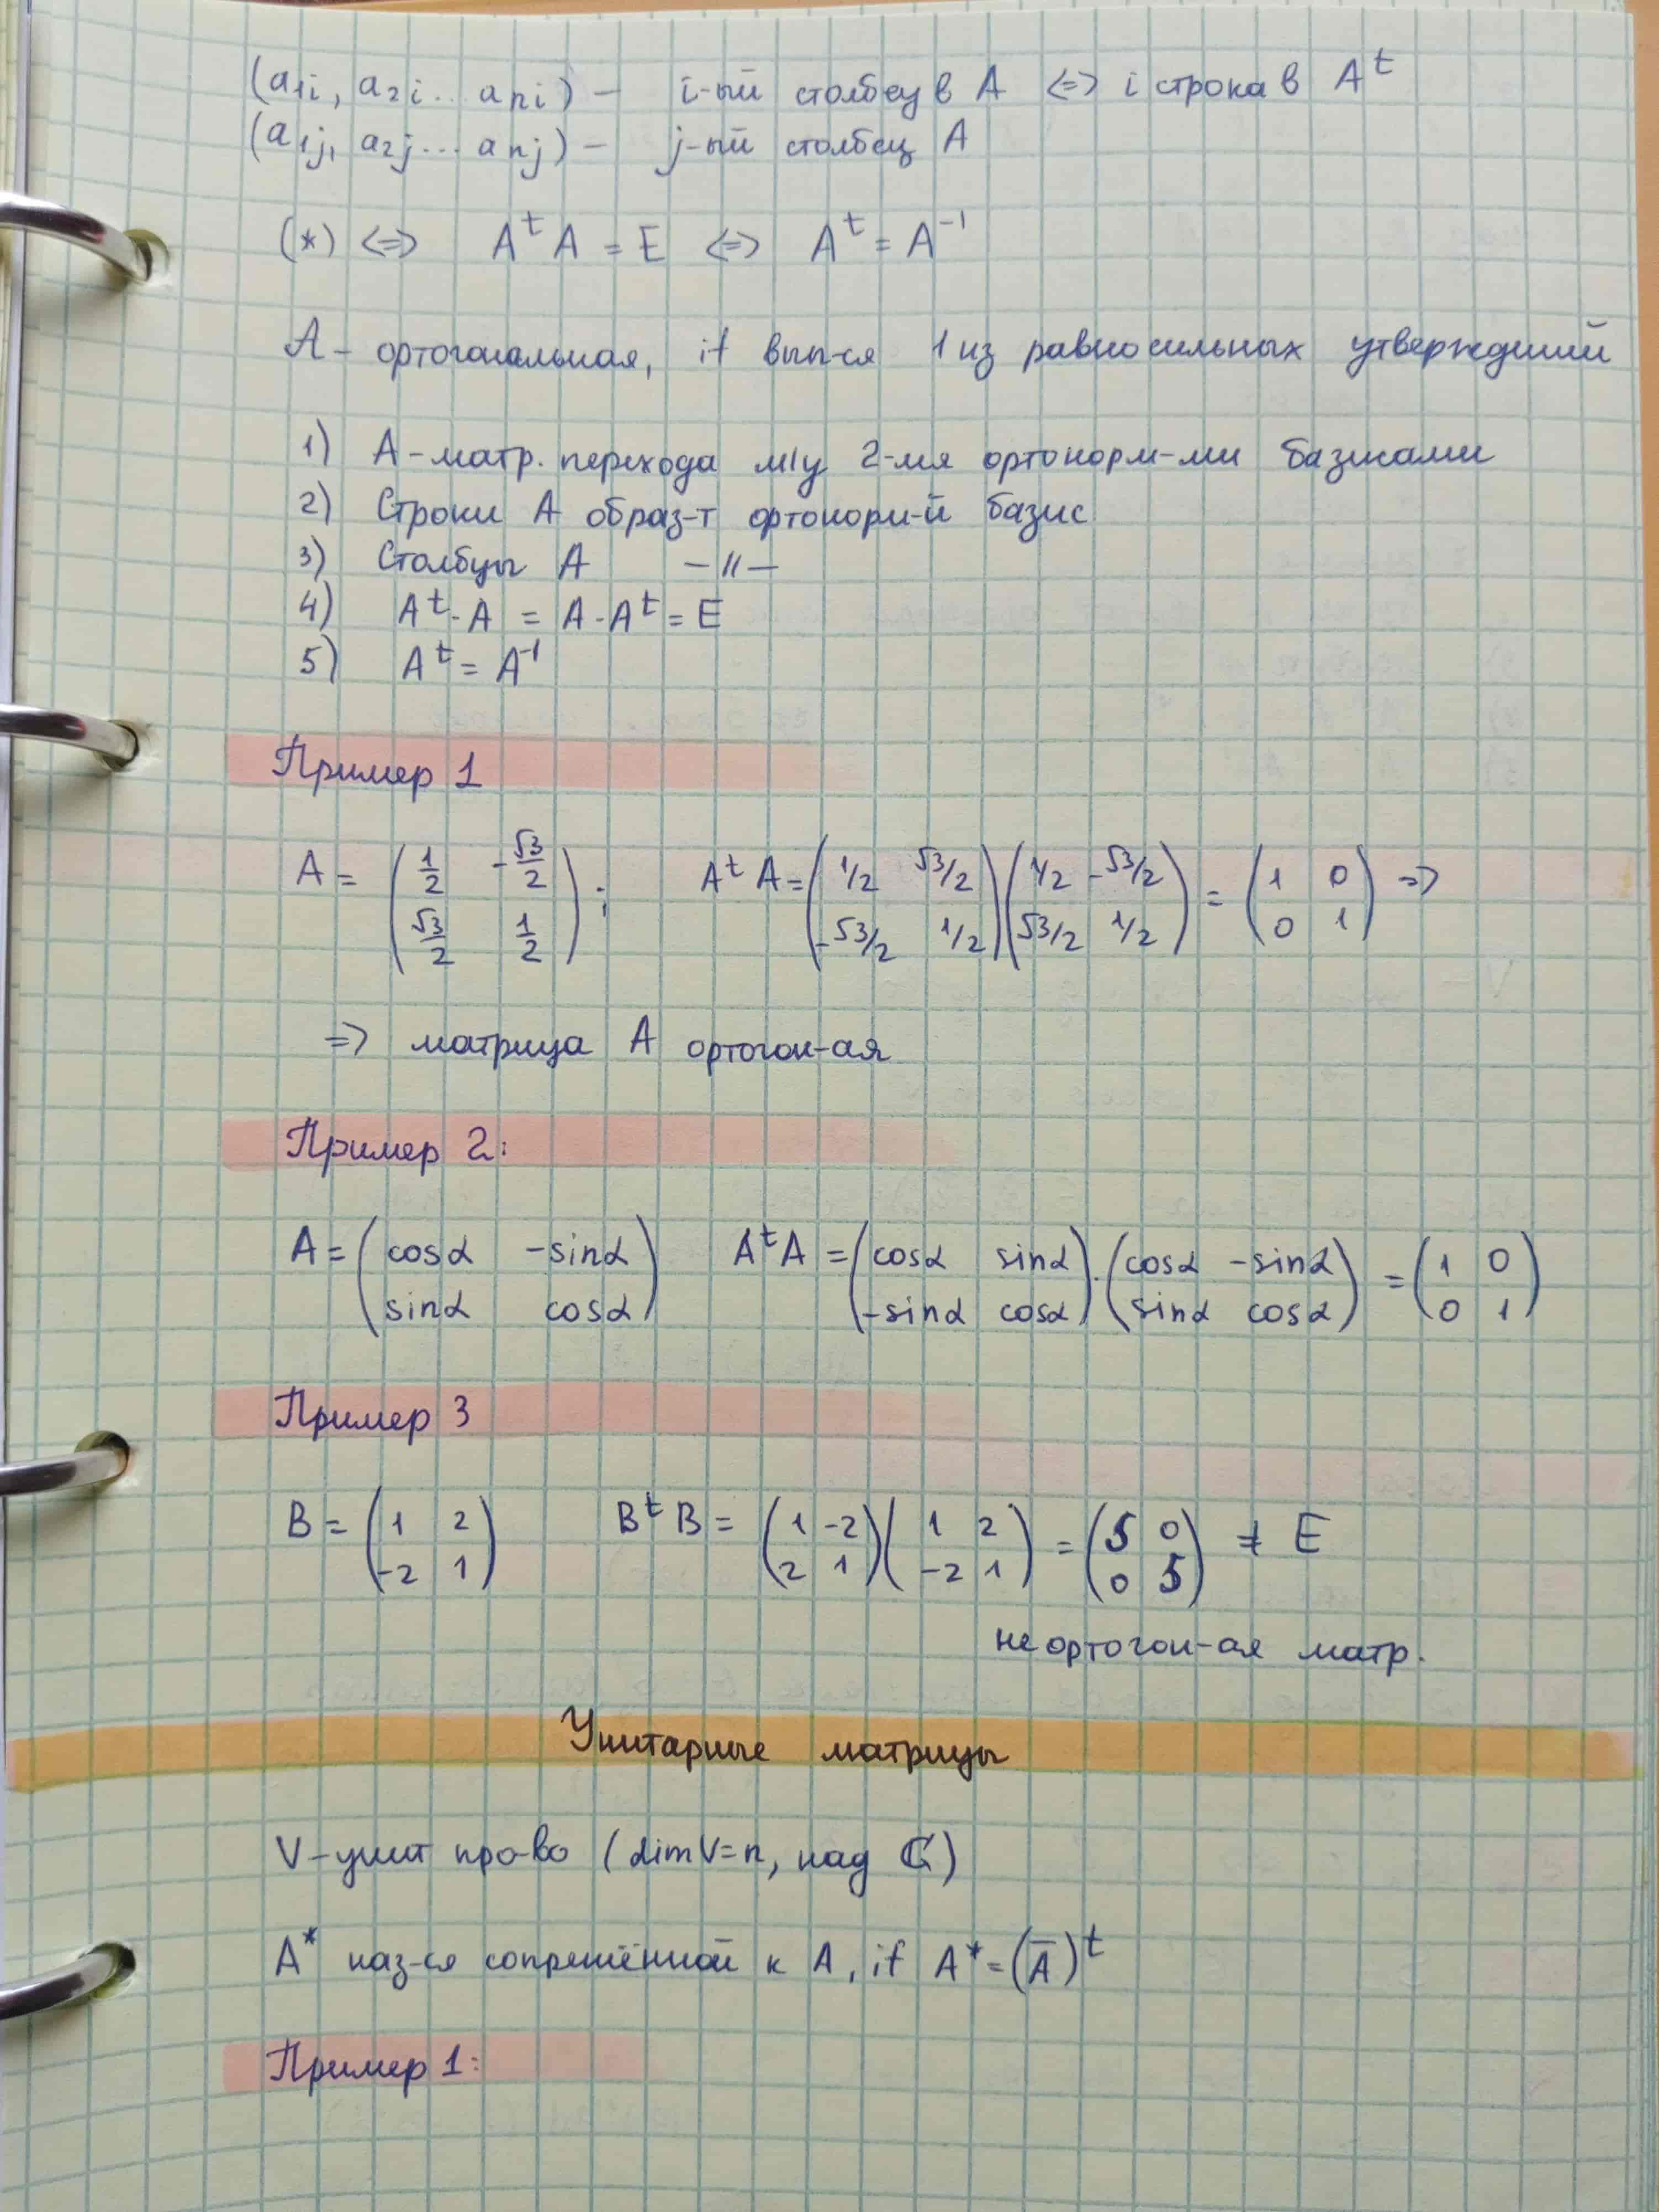 (a₁ᵢ, a₂ᵢ... aₙᵢ) – i-ый столбец в A <=> i строка в Aᵗ
(a₁ⱼ, a₂ⱼ... aₙⱼ) – j-ый столбец A
(*) <=> Aᵗ A = E <=> Aᵗ = A⁻¹
A – ортогональная, if вып-ся 1 из равносильных утверждений
1) A – матр. перехода м/у 2-мя ортонорм-ми базисами
2) Строки A образ-т ортонорм-й базис
3) Столбцы A –//–
4) Aᵗ·A = A·Aᵗ = E
5) Aᵗ = A⁻¹
Пример 1
A = (1/2 -√3/2; √3/2 1/2); AᵗA = (1/2 √3/2; -√3/2 1/2)(1/2 -√3/2; √3/2 1/2) = (1 0; 0 1) =>
=> матрица A ортогон-ая
Пример 2:
A = (cosα -sinα; sinα cosα) AᵗA = (cosα sinα; -sinα cosα)·(cosα -sinα; sinα cosα) = (1 0; 0 1)
Пример 3
B = (1 2; -2 1) BᵗB = (1 -2; 2 1)(1 2; -2 1) = (5 0; 0 5) ≠ E
не ортогон-ая матр.
Унитарные матрицы
V – унит пр-во (dimV=n, над ℂ)
A* наз-ся сопряжённой к A, if A* = (A̅)ᵗ
Пример 1: